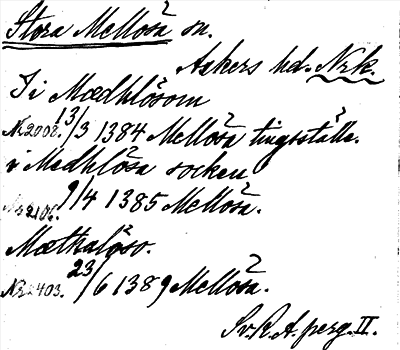 Stora Mellösa sn.
Askers hd. Nrk.
I i Mædhlösom
Nr 2002. 13/3 1384 Mellösa tingsställe.
i Medhlösa socken
Nr 2106. 9/4 1385 Mellösa.
Mæthalöso.
Nr 2403. 23/6 1389 Mellösa.
Sv. R. A. perg. II.